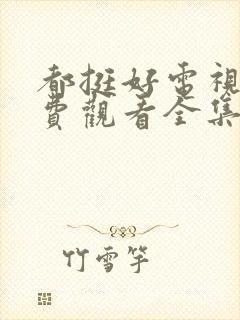 都挺好電視
費觀看全集
竹雪竿